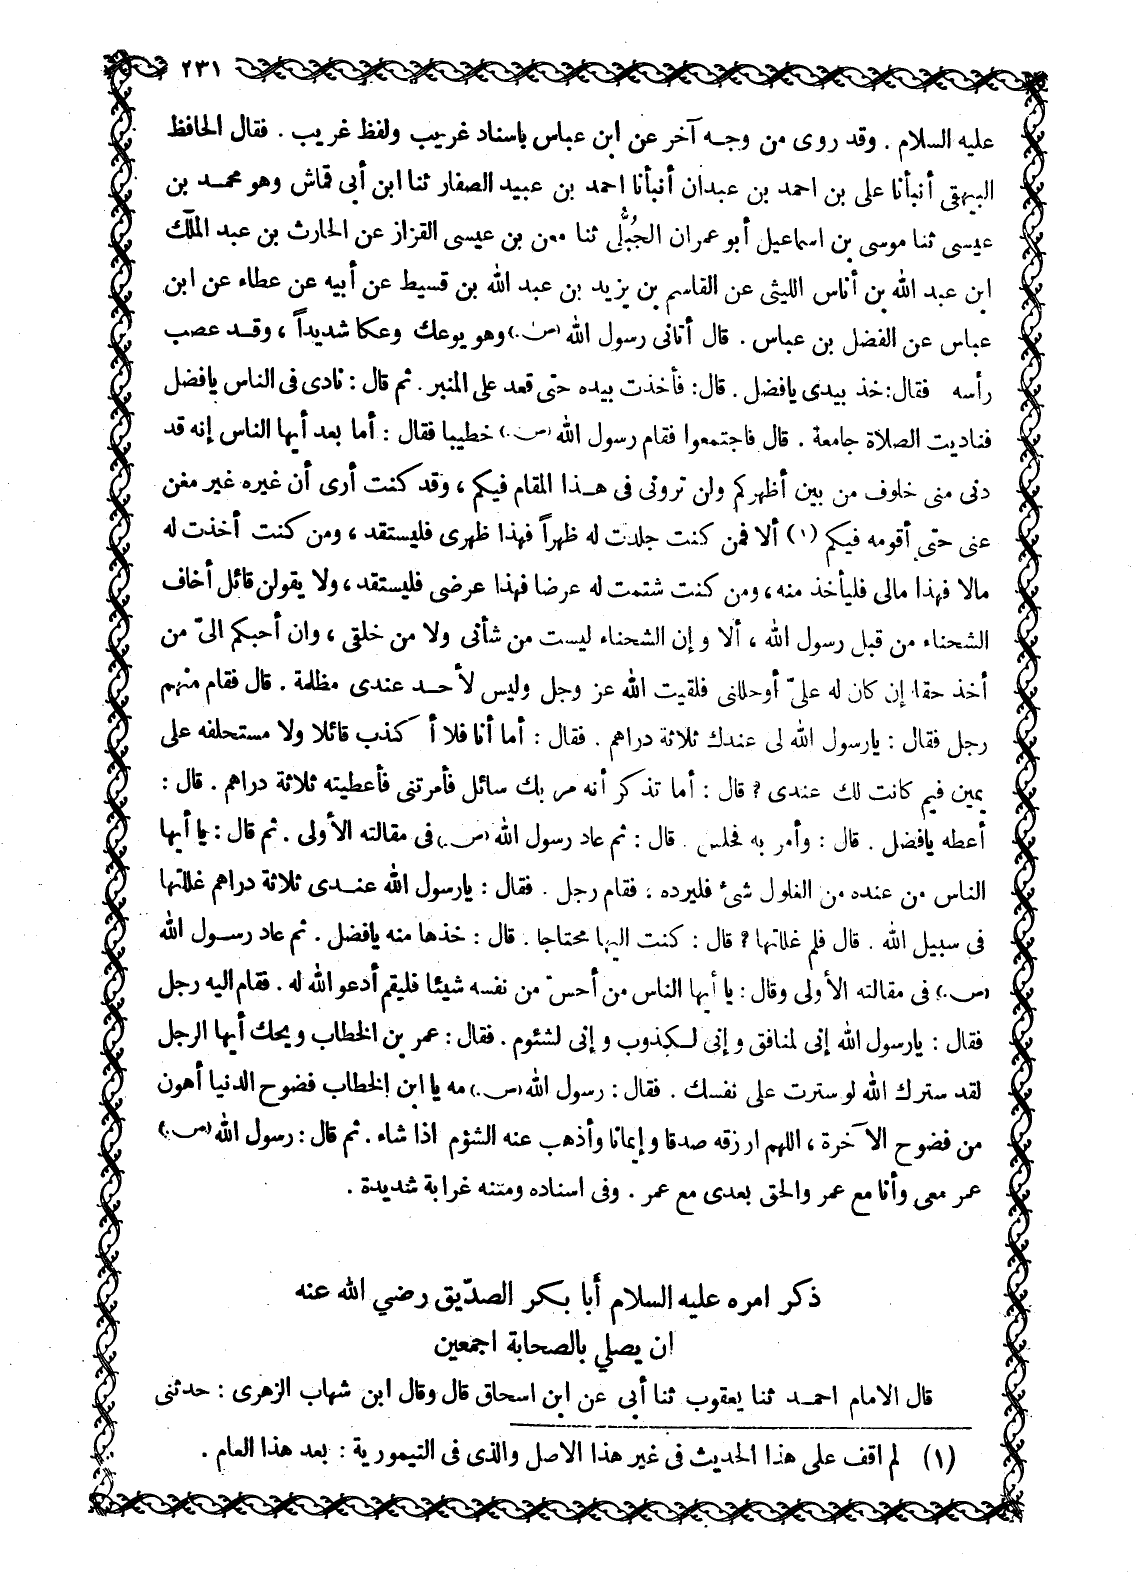 ٢٣١
عليه السلام . وقد روى من وجـه آخر عن ابن عباس باسناد غريب ولفظ غريب . فقال الحافظ
البيهقى أنبأنا على بن احمد بن عبدان أنبأنا احمد بن عبيد الصفار ثنا ابن أبى قماش وهو محمـد بن
عيسى ثنا موسى بن اسماعيل أبو عمران الجُبُّلى ثنا معن بن عيسى القزاز عن الحارث بن عبد الملك
ابن عبد الله بن أناس الليثى عن القاسم بن يزيد بن عبد الله بن قسيط عن أبيه عن عطاء عن ابن
عباس عن الفضل بن عباس . قال أتانى رسول الله (ص.) وهو يوعك وعكا شديداً ، وقـد عصب
رأسه فقال: خذ بيدى يافضل . قال: فأخذت بيده حتى قعد على المنبر . ثم قال : نادى فى الناس يافضل
فناديت الصلاة جامعة . قال فاجتمعوا فقام رسول الله (ص.) خطيبا فقال : أما بعد أيها الناس إنه قد
دنى منى خلوف من بين أظهركم ولن ترونى فى هـذا المقام فيكم ، وقد كنت أرى أن غيره غير مغن
عنى حتى أقومه فيكم (١) ألا فمن كنت جلدت له ظهراً فهذا ظهرى فليستقد ، ومن كنت أخذت له
مالا فهذا مالى فليأخذ منه ، ومن كنت شتمت له عرضا فهذا عرضى فليستقد ، ولا يقولن قائل أخاف
الشحناء من قبل رسول الله ، ألا وإن الشحناء ليست من شأنى ولا من خلقى ، وان أحبكم الىّ من
أخذ حقا إن كان له علىّ أوحللنى فلقيت الله عز وجل وليس لأحـد عندى مظلمة . قال فقام منهم
رجل فقال : يارسول الله لى عندك ثلاثة دراهم . فقال : أما أنا فلا أكذب قائلا ولا مستحلفه على
يمين فيم كانت لك عندى ؟ قال : أما تذكر أنه مر بك سائل فأمرتنى فأعطيته ثلاثة دراهم . قال :
أعطه يافضل . قال : وأمر به فجلس . قال : ثم عاد رسول الله (ص.) فى مقالته الأولى . ثم قال : يا أيها
الناس من عنده من الغلول شىء فليرده ، فقام رجل . فقال : يارسول الله عنـدى ثلاثة دراهم غللتها
فى سبيل الله . قال فلم غللتها ؟ قال : كنت اليها محتاجا . قال : خذها منه يافضل . ثم عاد رسـول الله
(ص.) فى مقالته الأولى وقال : يا أيها الناس من أحسّ من نفسه شيئا فليقم أدعو الله له . فقام اليه رجل
فقال : يارسول الله إنى لمنافق وإنى لـكذوب وإنى لشئوم . فقال : عمر بن الخطاب ويحك أيها الرجل
لقد سترك الله لو سترت على نفسك . فقال : رسول الله (ص.) مه يا ابن الخطاب فضوح الدنيا أهون
من فضوح الآخرة ، اللهم ارزقه صدقا وإيمانا وأذهب عنه الشؤم اذا شاء . ثم قال : رسول الله (ص.)
عمر معى وأنا مع عمر والحق بعدى مع عمر . وفى اسناده ومتنه غرابة شديدة .
ذكر امره عليه السلام أبا بـكر الصدّيق رضي الله عنه
ان يصلي بالصحابة اجمعين
قال الامام احمـد ثنا يعقوب ثنا أبى عن ابن اسحاق قال وقال ابن شهاب الزهرى : حدثنى
(١) لم اقف على هذا الحديث فى غير هذا الاصل والذى فى التيمورية : بعد هذا العام .